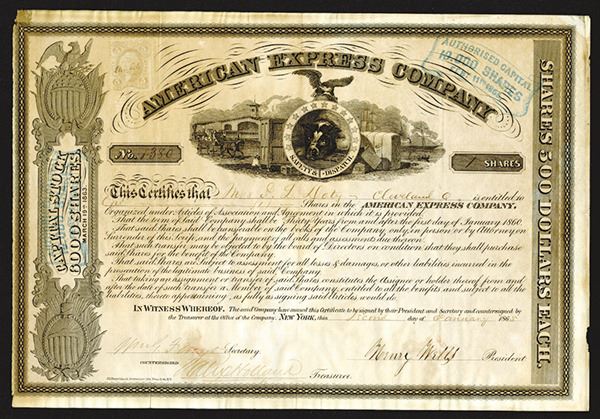 AUTHORISED CAPITAL
10,000 SHARES
AMERICAN EXPRESS COMPANY
SAFETY & DISPATCH
No.
1 SHARES
SHARES 500 DOLLARS EACH.
CAPITAL STOCK
6000 SHARES
MARCH 19TH 1863.
This Certifies that Cleveland O is entitled to
Shares in the AMERICAN EXPRESS COMPANY,
Organized under Articles of Association and Agreement in which it is provided.
That the term of said Company shall be Thirty Years from and after the first day of January 1860.
That said Shares shall be transferable on the books of the Company, only in person or by Attorney on
Surrender of this Certificate and the payment of all calls and assessments due thereon.
That such transfer may be objected to by the board of Directors on condition that they shall purchase
said Shares for the benefit of the Company.
That said Shares are Subject to assessment for all losses & damages, or other liabilities incurred in the
prosecution of the legitimate business of said Company.
That taking an assignment or transfer of said Shares constitutes the Assignee or holder thereof from and
after the date of such transfer a Member of said Company, entitled to all the benefits and subject to all the
liabilities, thereto appertaining, as fully as signing said Articles would do.
IN WITNESS WHEREOF. The said Company have caused this Certificate to be signed by their President and Secretary and countersigned by
the Treasurer at the Office of the Company. NEW YORK, this Second day of January 1865
Secretary.
Henry Wells President
COUNTERSIGNED
Holland Treasurer.